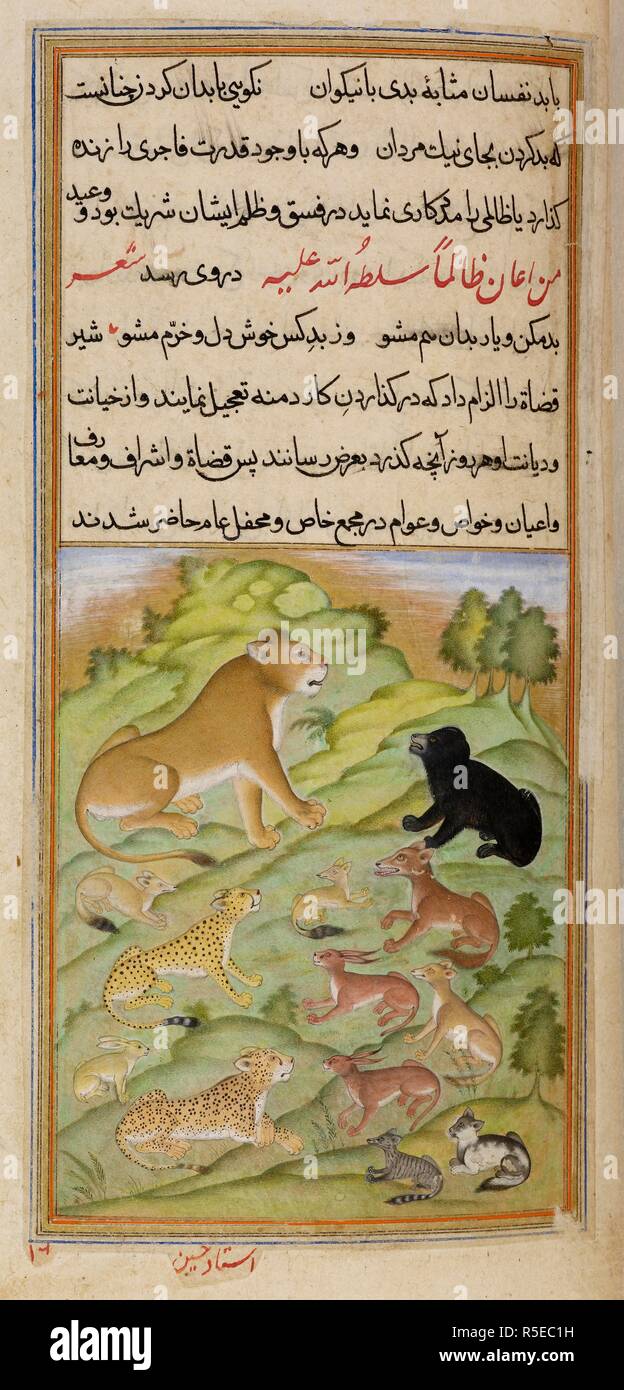 با بد نفسان مثابهٔ بدی با نیکوان نکویی با بدان کردن چنانست
که بد کردن بجای نیک مردان وهرکه با وجود قدرت فاجری را زنده
گذارد یا ظالمی را مددکاری نماید در فسق و ظلم ایشان شریک بود و وعید
من اعان ظالماً سلطه اللّه علیه در وی رسد شعر
بد مکن و یار بدان هم مشو وز بد کس خوش دل و خرّم مشو شیر
قضاة را الزام داد که در گذاردن کار دمنه تعجیل نمایند و از خیانت
و دیانت او هر روز آنچه گذرد بعرض رسانند پس قضاة و اشراف و معارف
و اعیان و خواص و عوام در مجمع خاص و محفل عام حاضر شدند
استاد حسین
alamy
Image ID: R5EC1H
www.alamy.com